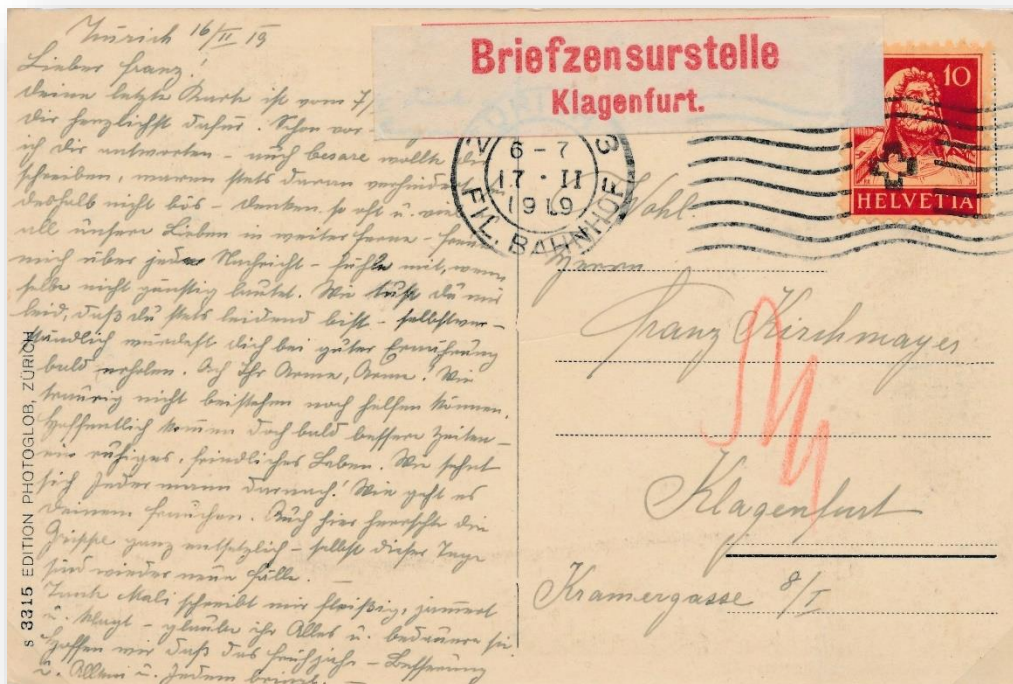 Zürich 16/II 19
Lieber Franz!
Deine letzte Karte ist vom 7/
Dir herzlichst dafür. Schon vor
ich Dir antworten – auch besare wollte Dir
schreiben, waren stets daran verhindert
deshalb nicht bös – denken so oft u. viel
all unsere Lieben in weiter Ferne – freue
mich über jede Nachricht – fühle mit, wenn
selbe nicht günstig lautet. Wie tust du mir
leid, daß du stets leidend bist – selbstver–
ständlich würdest dich bei guter Ernährung
bald erholen. Ach Ihr Arme, Arme! Wie
traurig nicht beistehen noch helfen können.
Hoffentlich kommen doch bald bessere Zeiten –
ein ruhiges, friedliches Leben. Wie sehnt
sich Jedermann darnach! Wie geht es
Deinem Frauchen. Auch hier herrscht die
Grippe ganz entsetzlich – selbst dieser Tage
sind wieder neue Fälle. –
Tante Mali schreibt mir fleißig, jammert
u. klagt – glaube ihr Alles u. bedaure sie
Hoffen wir daß das Frühjahr – Besserung
u. Allen u. Jedem bringt. –
S 3315 EDITION PHOTOGLOB, ZÜRICH
Briefzensurstelle
Klagenfurt.
10
HELVETIA
6 – 7
17 · II
1919
FIL. BAHNHOF
Wohl.
Herrn
Franz Kirschmayer
Klagenfurt
Kramergasse 8/I